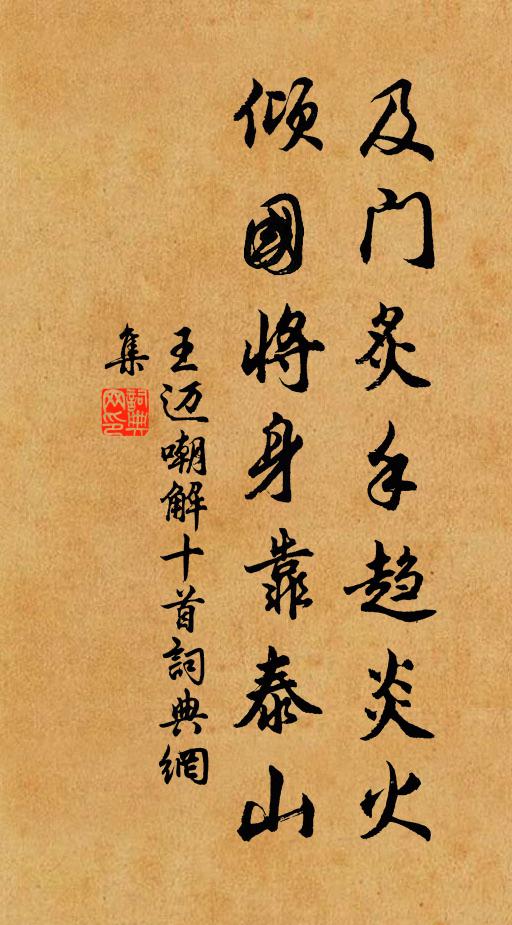 及门炙手趋炎火
倾國将身靠泰山
王迈嘲解十首詞典網
集
詞典
网印